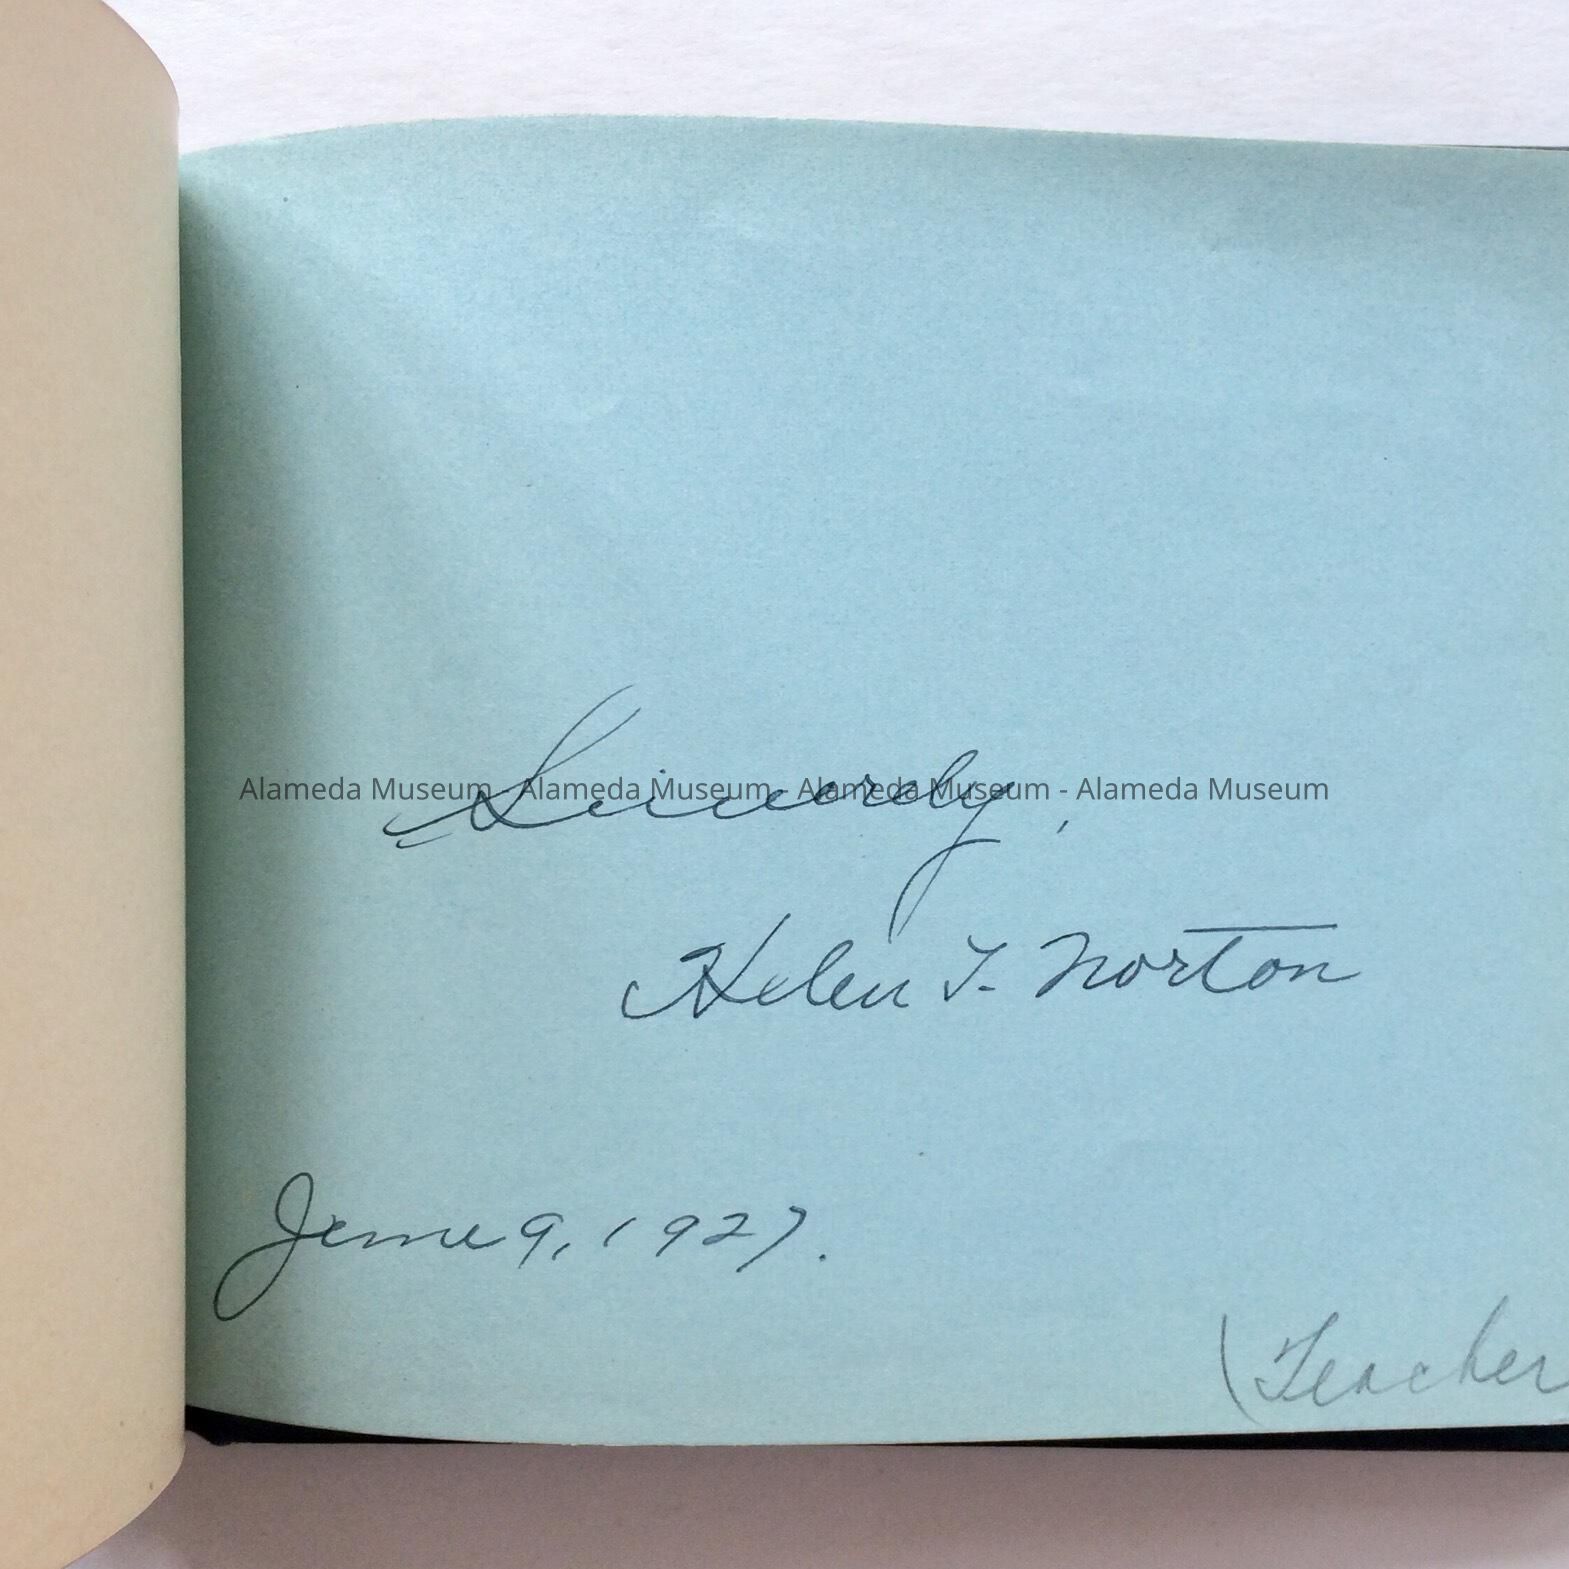 Alameda Museum - Alameda Museum - Alameda Museum - Alameda Museum
Sincerely,
Helen T. Norton
June 9, 1927.
(Teacher